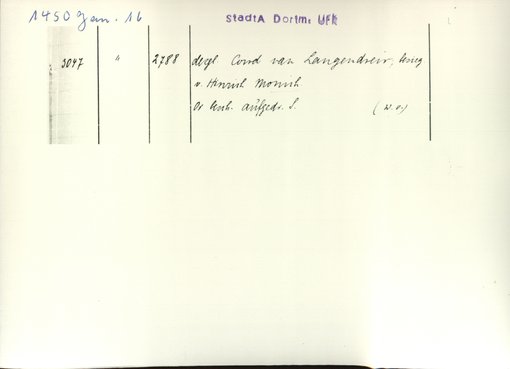 1450 Jan. 16
StadtA Dortm. UFR
3047 " 2788 desgl. Cord van Langendreir,
v. Hinrich Monich
Or. aufgedr. S. (w. o.)